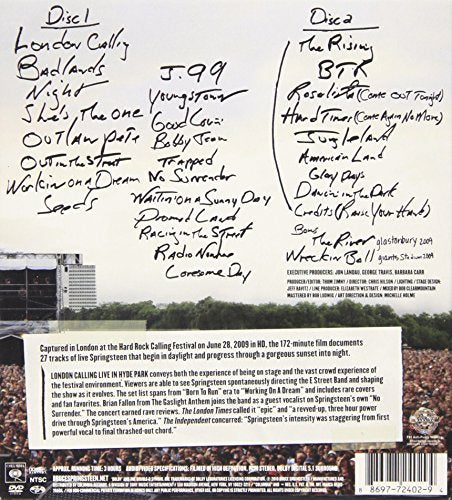 Disc 1
London Calling
Badlands
Night
She's The One
Outlaw Pete
Out in the Street
Workin on a Dream
Seeds
J. 99
Youngstown
Good Lovin'
Bobby Jean
Trapped
No Surrender
Waitin' on a Sunny Day
Promised Land
Racing in the Street
Radio Nowhere
Lonesome Day
Disc 2
The Rising
BTR
Rosalita (Come Out Tonight)
Hard Times (Come Again No More)
Jungleland
American Land
Glory Days
Dancin in the Dark
Credits (Raise Your Hand)
Bonus
The River glastonbury 2009
Wreckin Ball giants stadium 2009
EXECUTIVE PRODUCERS: JON LANDAU, GEORGE TRAVIS, BARBARA CARR
PRODUCER/EDITOR: THOM ZIMNY / DIRECTOR: CHRIS HILSON / LIGHTING / STAGE DESIGN:
JEFF RAVITZ / LINE PRODUCER: ELIZABETH WESTRATE / MIXED BY BOB CLEARMOUNTAIN
MASTERED BY BOB LUDWIG / ART DIRECTION & DESIGN: MICHELLE HOLME
Captured in London at the Hard Rock Calling Festival on June 28, 2009 in HD, the 172-minute film documents
27 tracks of live Springsteen that begin in daylight and progress through a gorgeous sunset into night.
LONDON CALLING LIVE IN HYDE PARK conveys both the experience of being on stage and the vast crowd experience of
the festival environment. Viewers are able to see Springsteen spontaneously directing the E Street Band and shaping
the show as it evolves. The set list spans from "Born To Run" era to "Working On A Dream" and includes rare covers
and fan favorites. Brian Fallon from The Gaslight Anthem joins the band as a guest vocalist on Springsteen's own "No
Surrender." The concert earned rave reviews. The London Times called it "epic" and "a revved-up, three hour power
drive through Springsteen's America." The Independent concurred: "Springsteen's intensity was staggering from first
powerful vocal to final thrashed-out chord."
COLUMBIA
NTSC
DVD
APPROX. RUNNING TIME: 3 HOURS
AUDIO/VIDEO SPECIFICATIONS: FILMED IN HIGH DEFINITION, PCM STEREO, DOLBY DIGITAL 5.1 SURROUND
BRUCESPRINGSTEEN.NET
8 8697-72402-9 4